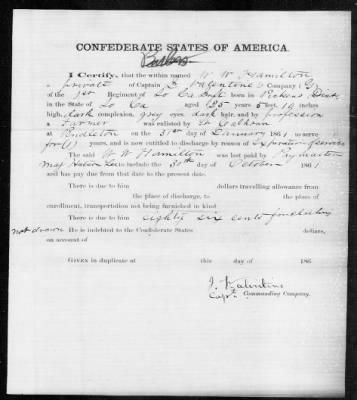 CONFEDERATE STATES OF AMERICA.
I Certify, that the within named W W Hamilton
a private of Captain J Valentine's Company (D)
of the 1st Regiment of So Ca born in Pickens Dist
in the State of So Ca aged 125 years 5 feet 10
inches high, dark complexion, grey eyes, dark hair, and by profession
a Farmer was enlisted by Calhoun
at Pendleton on the 31st day of January 1861 to serve
for (1) years, and is now entitled to discharge by reason of Expiration of service
The said W W Hamilton was last paid by Paymaster
Maj to include the 30th day of October 1861
and has pay due from that date to the present date.
There is due to him dollars travelling allowance from
the place of discharge, to the place of
enrollment, transportation not being furnished in kind
There is due to him eighty six cents for clothing
not drawn He is indebted to the Confederate States dollars,
on account of
GIVEN in duplicate at this day of 186
J. Valentine
Capt. Commanding Company.